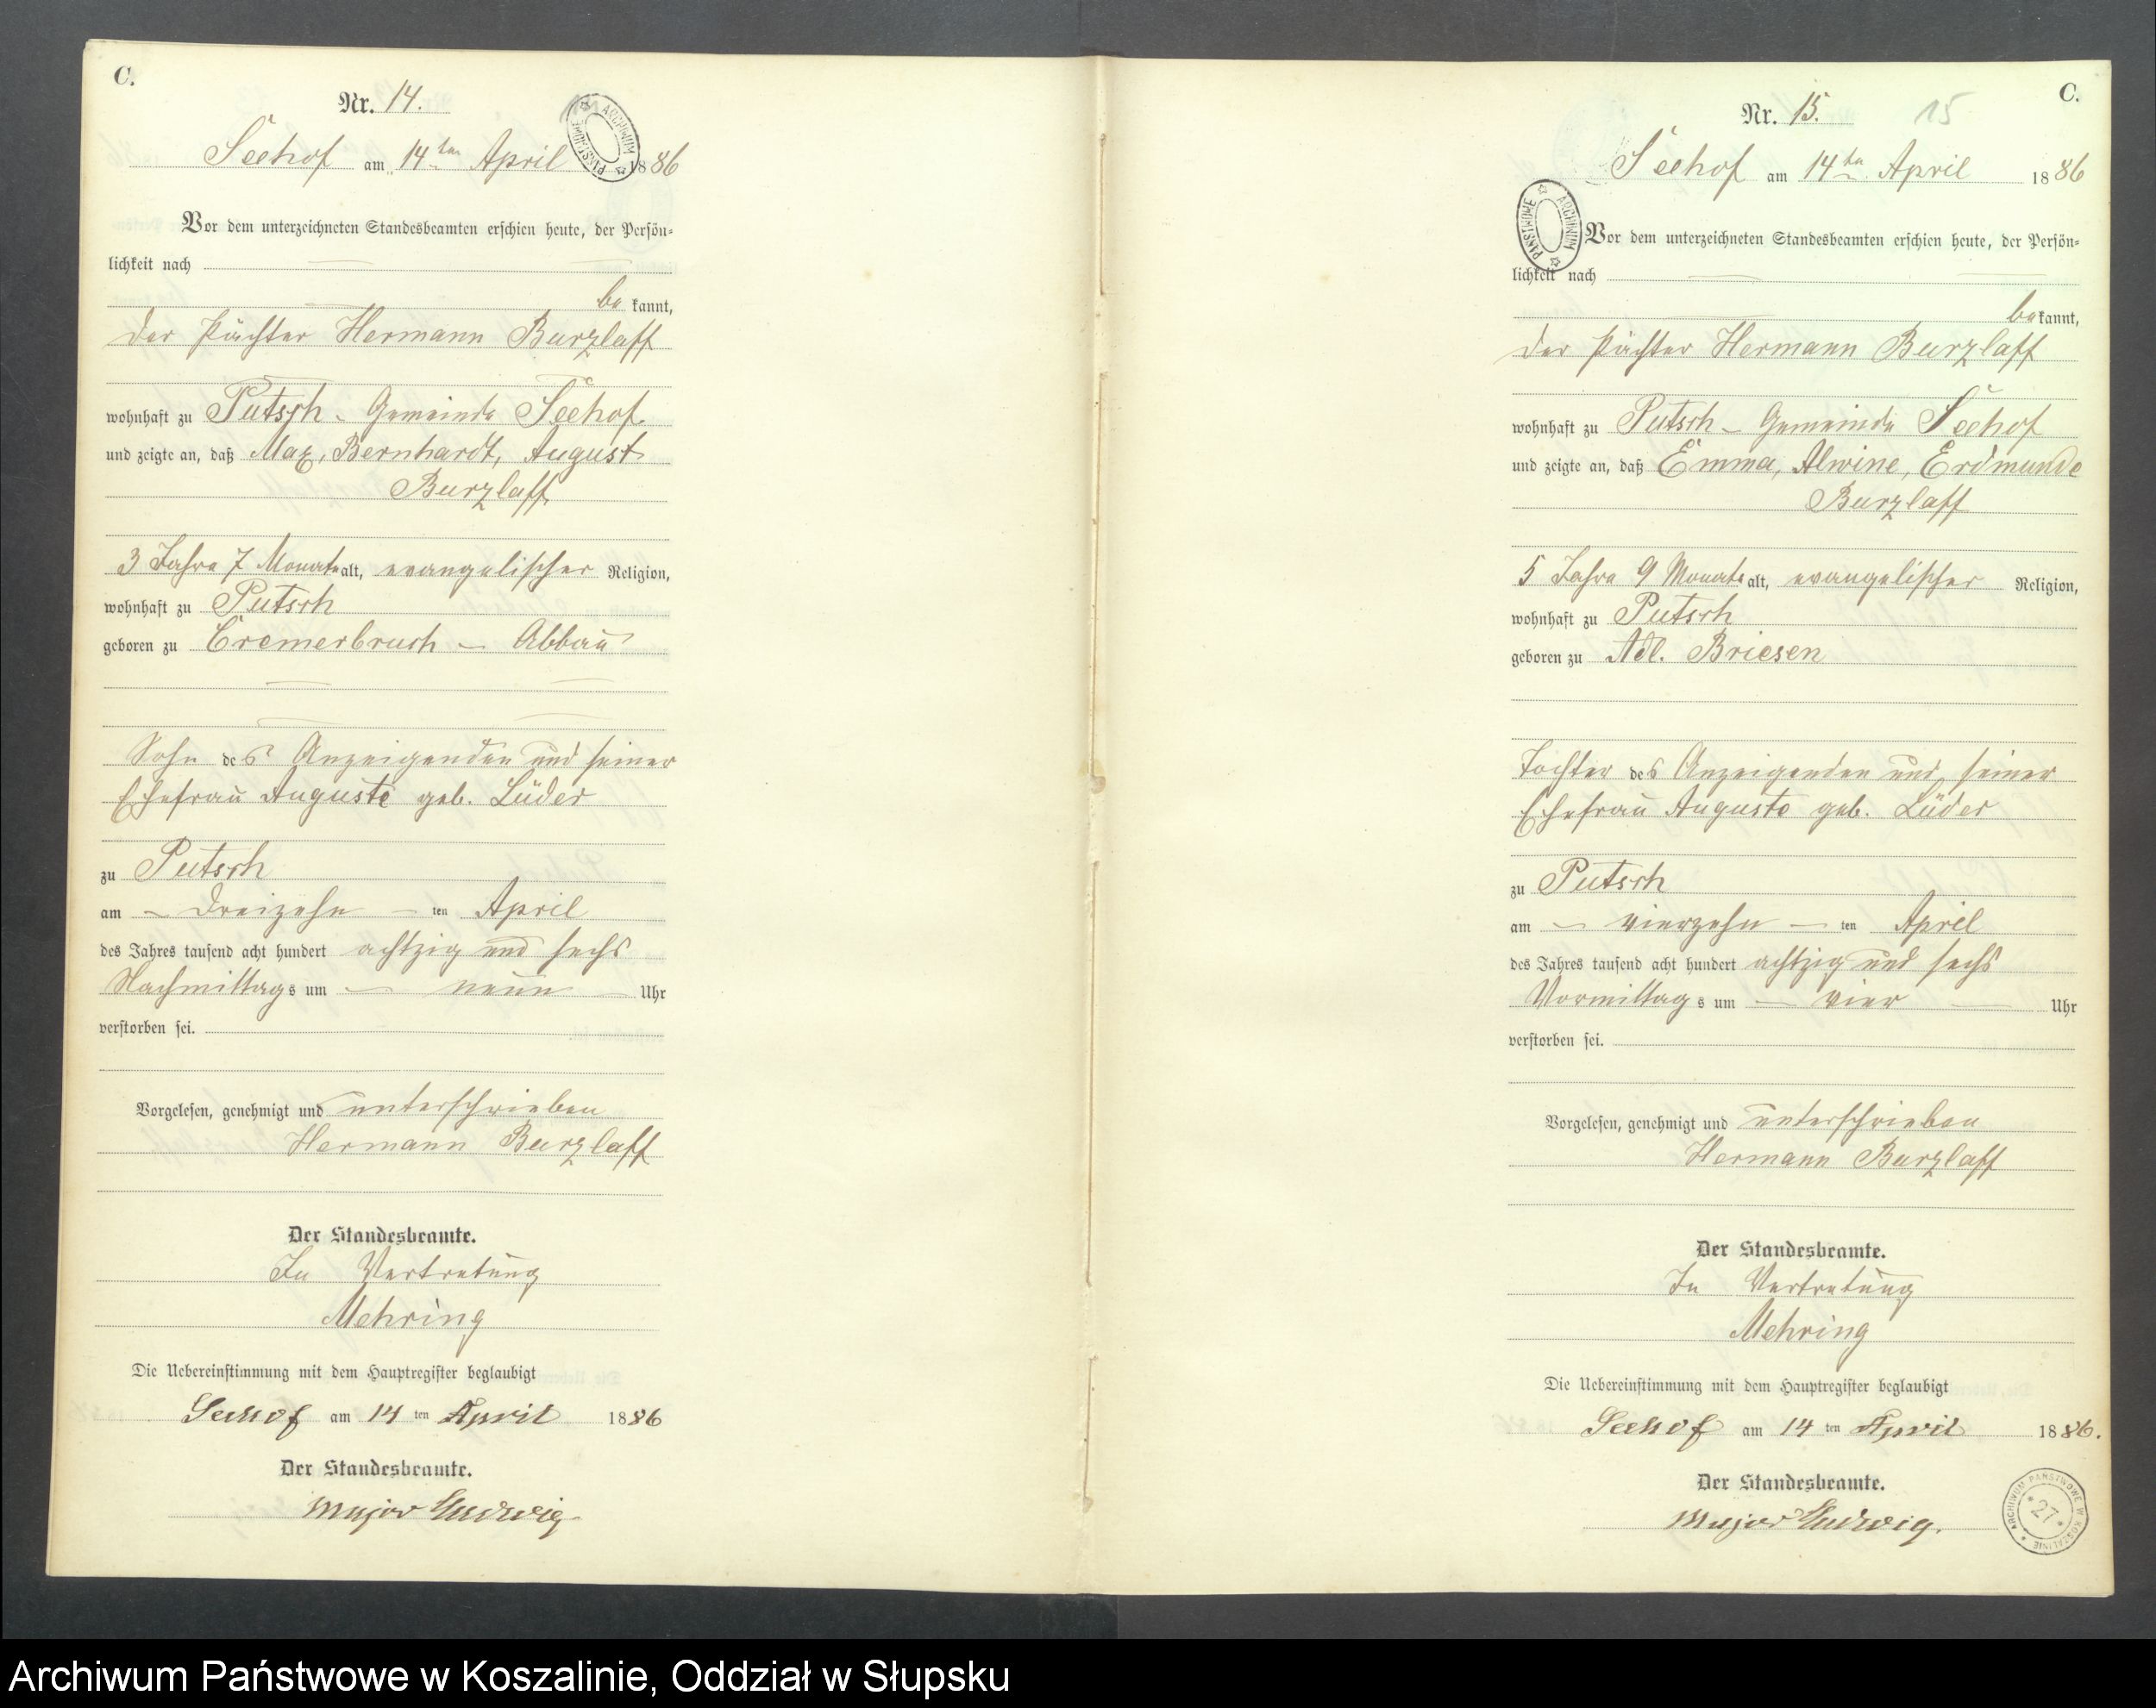 C.
Nr. 14.
ARCHIWUM PAŃSTWOWE
Seehof am 14ten April 1886
Vor dem unterzeichneten Standesbeamten erschien heute, der Persön-
lichkeit nach
be kannt,
der Pächter Hermann Burzlaff
wohnhaft zu Putsch - Gemeinde Seehof
und zeigte an, daß Max, Bernhardt, August
Burzlaff
3 Jahre 7 Monate alt, evangelischer Religion,
wohnhaft zu Putsch
geboren zu Cremerbruch - Abbau
Sohn des Anzeigenden und seiner
Ehefrau Auguste geb. Lüder
zu Putsch
am - dreizehn - ten April
des Jahres tausend acht hundert achtzig und sechs
Nachmittags um - neun - Uhr
verstorben sei.
Vorgelesen, genehmigt und unterschrieben
Hermann Burzlaff
Der Standesbeamte.
In Vertretung
Mehring
Die Uebereinstimmung mit dem Hauptregister beglaubigt
Seehof am 14 ten April 1886
Der Standesbeamte.
Major Ludwig
C.
Nr. 15. 15
Seehof am 14ten April 1886
ARCHIWUM PAŃSTWOWE
Vor dem unterzeichneten Standesbeamten erschien heute, der Persön-
lichkeit nach
be kannt,
der Pächter Hermann Burzlaff
wohnhaft zu Putsch - Gemeinde Seehof
und zeigte an, daß Emma, Alwine, Erdmunde
Burzlaff
5 Jahre 9 Monate alt, evangelischer Religion,
wohnhaft zu Putsch
geboren zu Adl. Briesen
Tochter des Anzeigenden und seiner
Ehefrau Auguste geb. Lüder
zu Putsch
am - vierzehn - ten April
des Jahres tausend acht hundert achtzig und sechs
Vormittags um - vier - Uhr
verstorben sei.
Vorgelesen, genehmigt und unterschrieben
Hermann Burzlaff
Der Standesbeamte.
In Vertretung
Mehring
Die Uebereinstimmung mit dem Hauptregister beglaubigt
Seehof am 14 ten April 1886.
Der Standesbeamte.
Major Ludwig.
ARCHIWUM PAŃSTWOWE W KOSZALINIE
*27*
Archiwum Państwowe w Koszalinie, Oddział w Słupsku